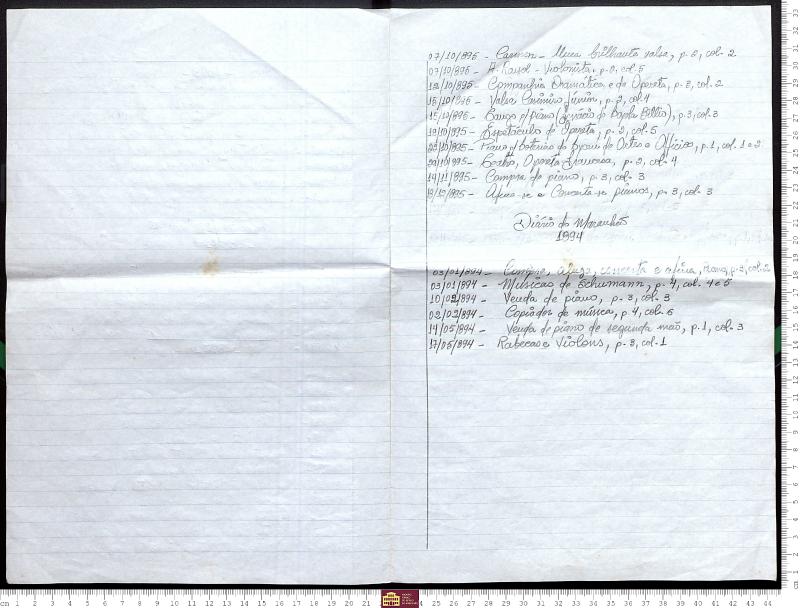 07/10/895 - Carmen - Uma brilhante valsa, p. 2, col. 2
07/10/895 - A. Rayol - Violonista, p. 2, col. 5
12/10/895 - Companhia Dramática e de Opereta, p. 3, col. 2
15/10/895 - Valsa Casimiro Júnior, p. 2, col. 4
15/10/895 - p/ piano (Ignácio do Billio), p. 3, col. 3
19/10/895 - Espetáculo de Opereta, p. 2, col. 5
Piano p/ loterias do de Artes e Offícios, p. 1, col. 1 e 2
Opereta Francesa, p. 2, col. 4
14/11/895 - Compra de piano, p. 3, col. 3
Afina-se e Concerta-se pianos, p. 3, col. 3
Diário do Maranhão
1894
03/01/894 - Compra, aluga, concerta e afina, Piano, p. 2, col. 2
03/01/894 - Músicas de Schumann, p. 4, col. 4 e 5
10/02/894 - Venda de piano, p. 3, col. 3
02/02/894 - Copiador de música, p. 4, col. 6
19/05/894 - Venda de piano de segunda mão, p. 1, col. 3
17/05/894 - Rabecas e Violons, p. 3, col. 1